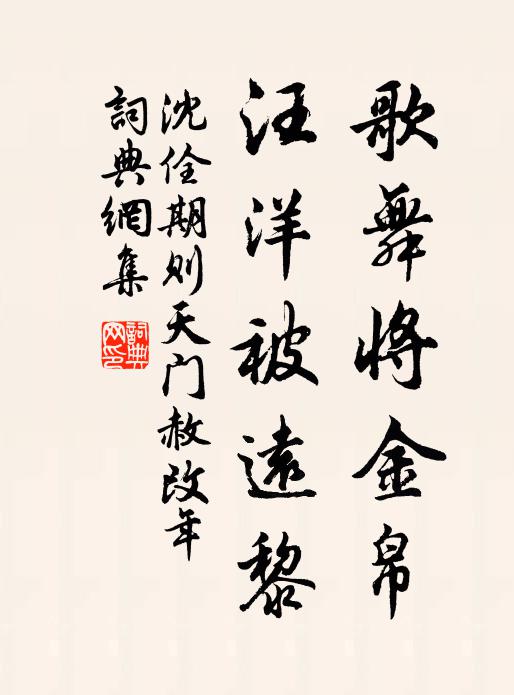 歌舞將金帛
汪洋被遠黎
沈佺期則天门赦改年
詞典網集
詞典网印